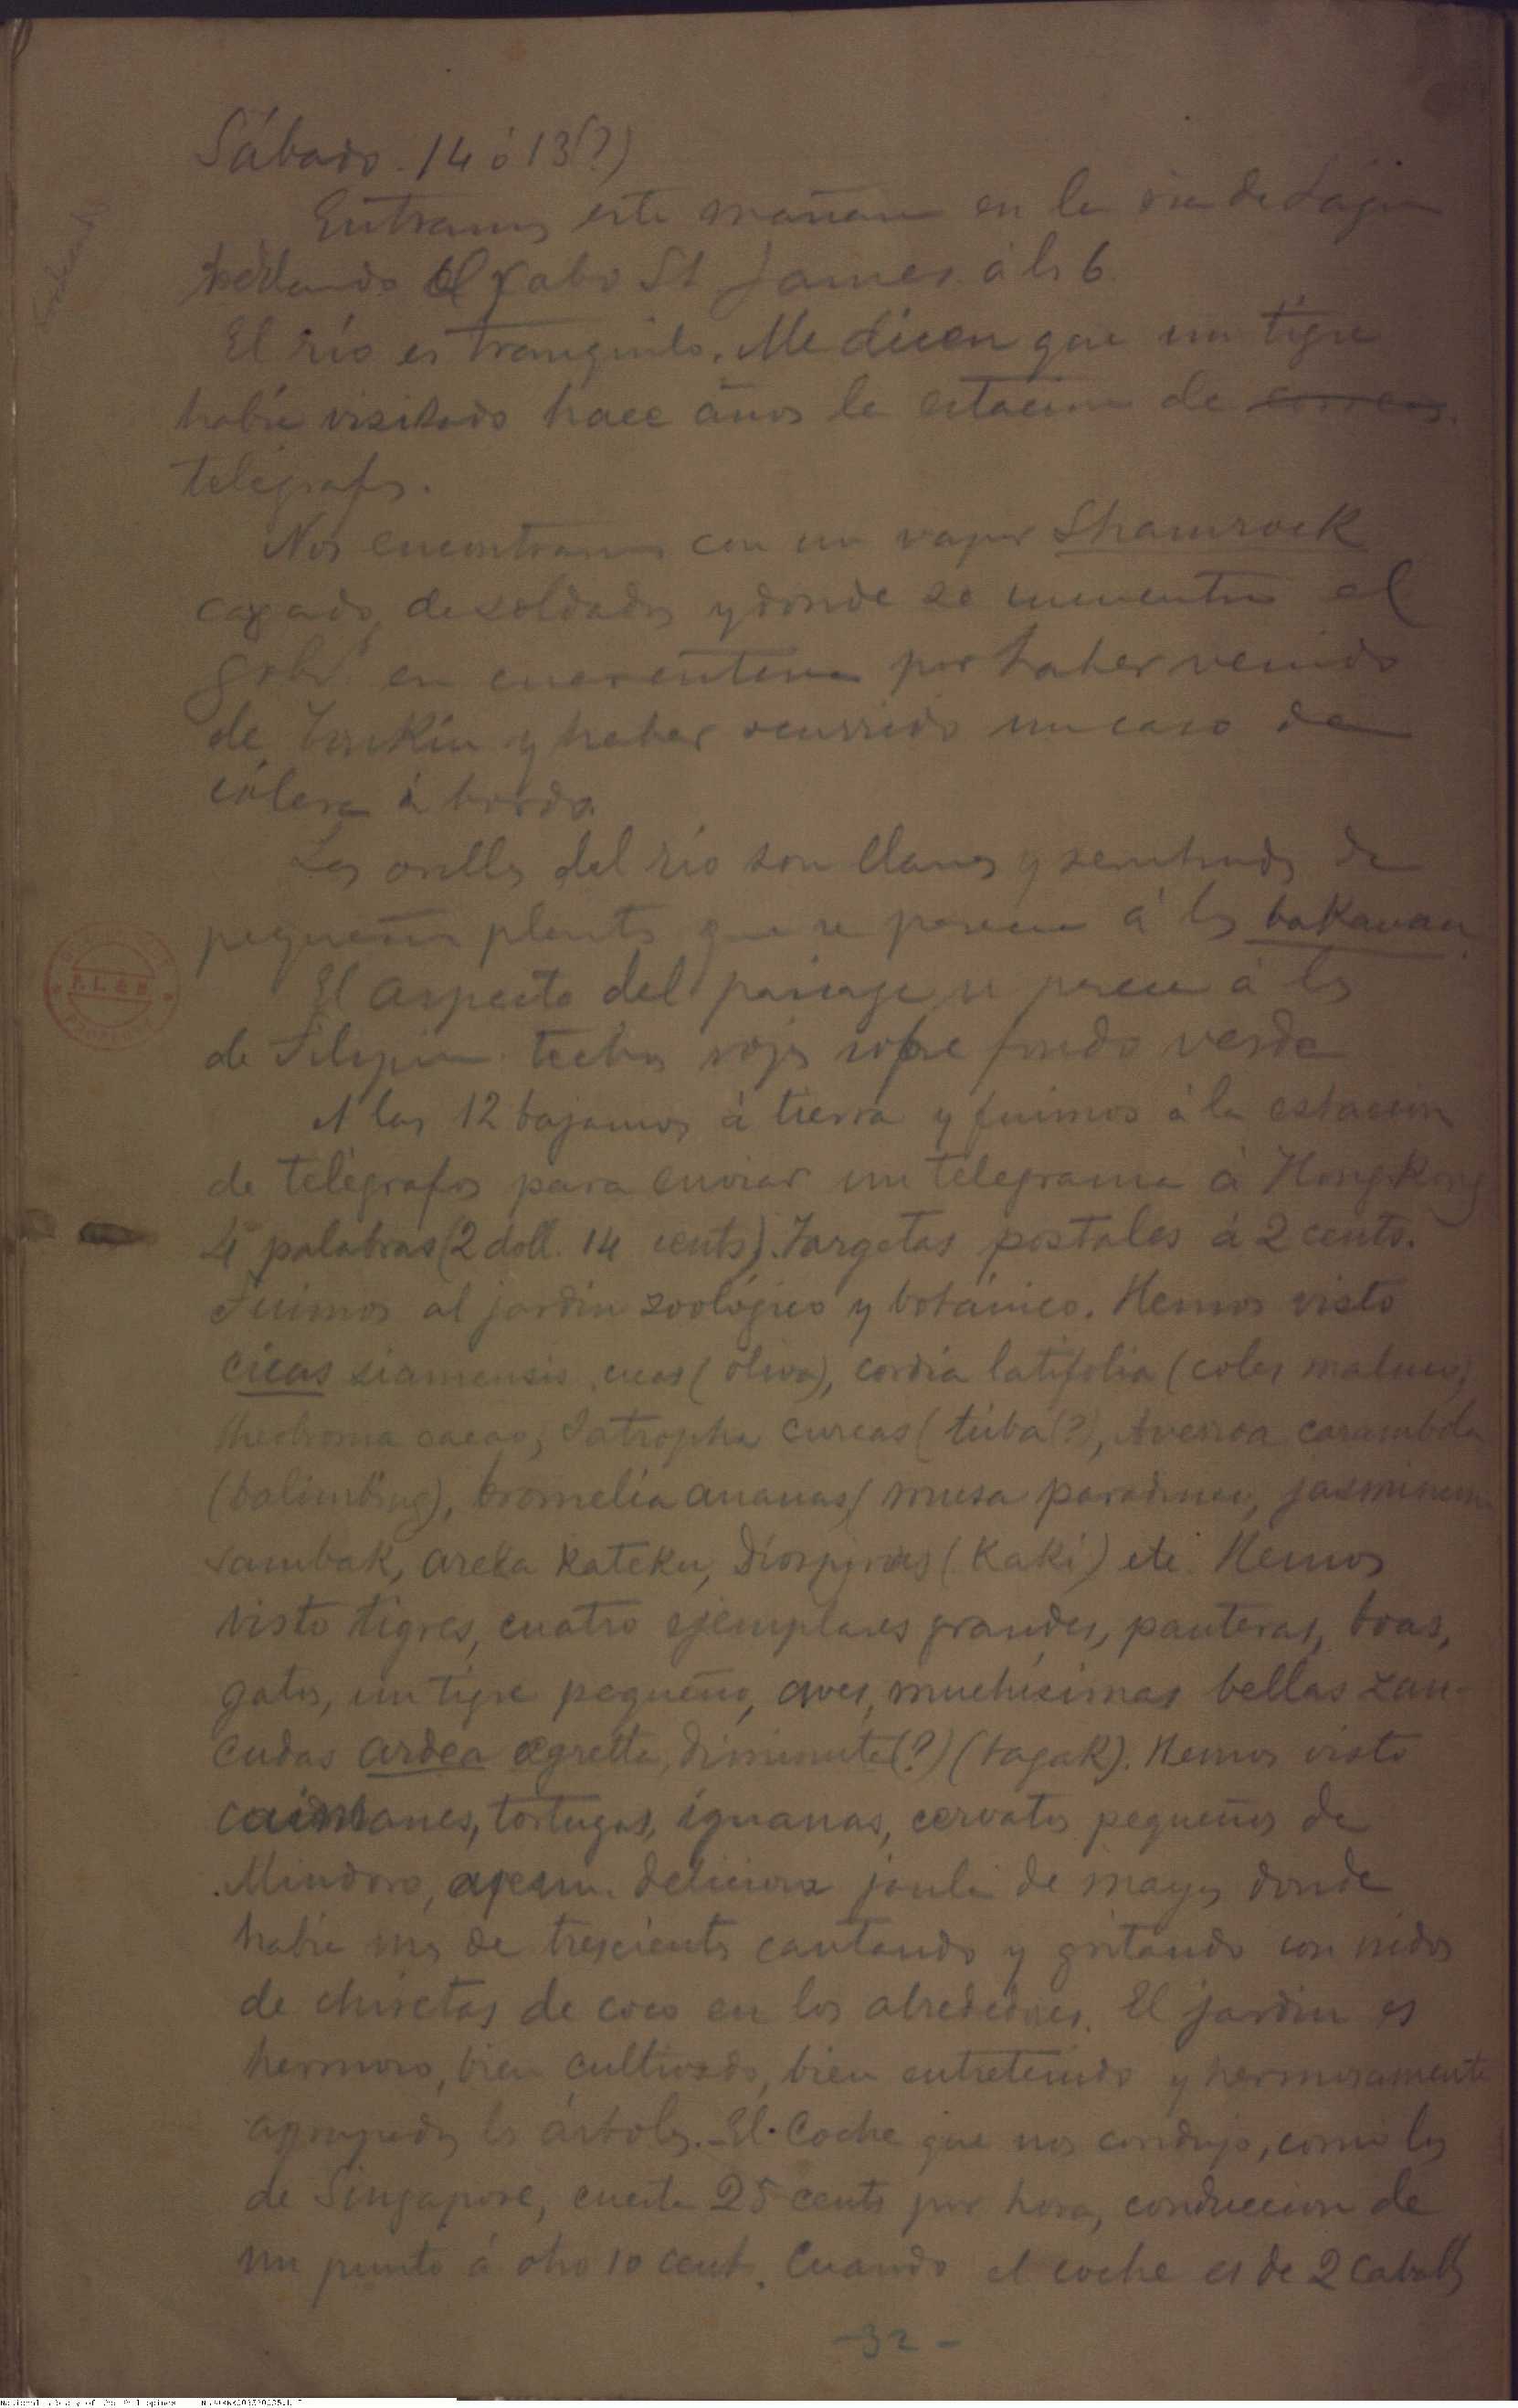 Sábado. 14 ó 13(?)
Entramos esta mañana en la ria de Saigon
doblando el Cabo St James á las 6.
El río es tranquilo. Me dicen que un tigre
había visitado hace años la estacion de correos.
telégrafos.
Nos encontramos con un vapor Shamrock
cargado de soldados y donde se encuentra el
gobr en cuarentena por haber venido
de Tonkin y haber ocurrido un caso de
cólera á bordo.
Las orillas del río son llanas y sembradas de
pequeñas plantas que se parecen á los bakawan.
El aspecto del paisage se parece á los
de Filipinas techos rojos sobre fondo verde
A las 12 bajamos á tierra y fuimos á la estacion
de telégrafos para enviar un telegrama á Hong Kong
4 palabras (2 doll. 14 cents). Targetas postales á 2 cents.
Fuimos al jardin zoológico y botánico. Hemos visto
cicas siamensis, cicas (oliva), cordia latifolia (coles maluco)
theobroma cacao, Jatropha curcas (tuba(?), Averroa carambola
(balimbing), bromelia ananas, musa paradisiaca, jasminum
sambak, areka kateku, Diospyros (Kaki) etc. Hemos
visto tigres, cuatro ejemplares grandes, panteras, boas,
gatos, un tigre pequeño, aves, muchísimas bellas zan-
cudas ardea egretta, diminuta(?) (tagak). Hemos visto
caimanes, tortugas, iguanas, cervatos pequeños de
Mindoro, deliciosa jaula de mayas donde
había mas de trescientos cantando y gritando con nidos
de chiretas de coco en los alrededores. El jardin es
hermoso, bien cultivado, bien entretenido y hermosamente
agrupados los árboles. - El coche que nos condujo, como los
de Singapore, cuesta 25 cents por hora, conduccion de
un punto á otro 10 cents. Cuando el coche es de 2 caballos
-32-